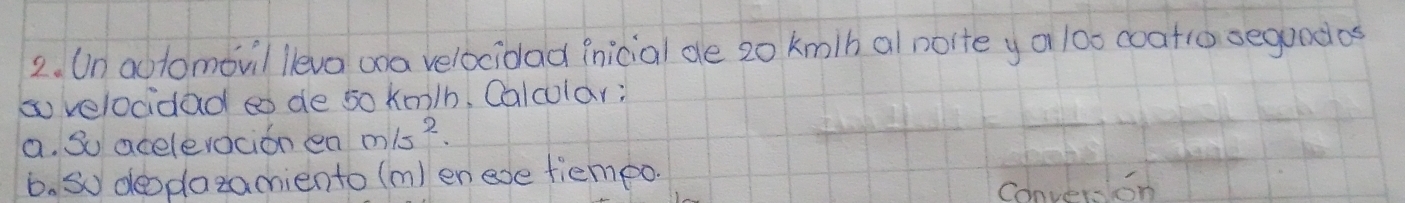 2. Un automóvil lleva una velocidad inicial de 20 km/h al norte y a los cuatro segundos
su velocidad es de 50 km/h. Calcular:
a. Su aceleración en m/s².
b. Su desplazamiento (m) en ese tiempo.
Conversión